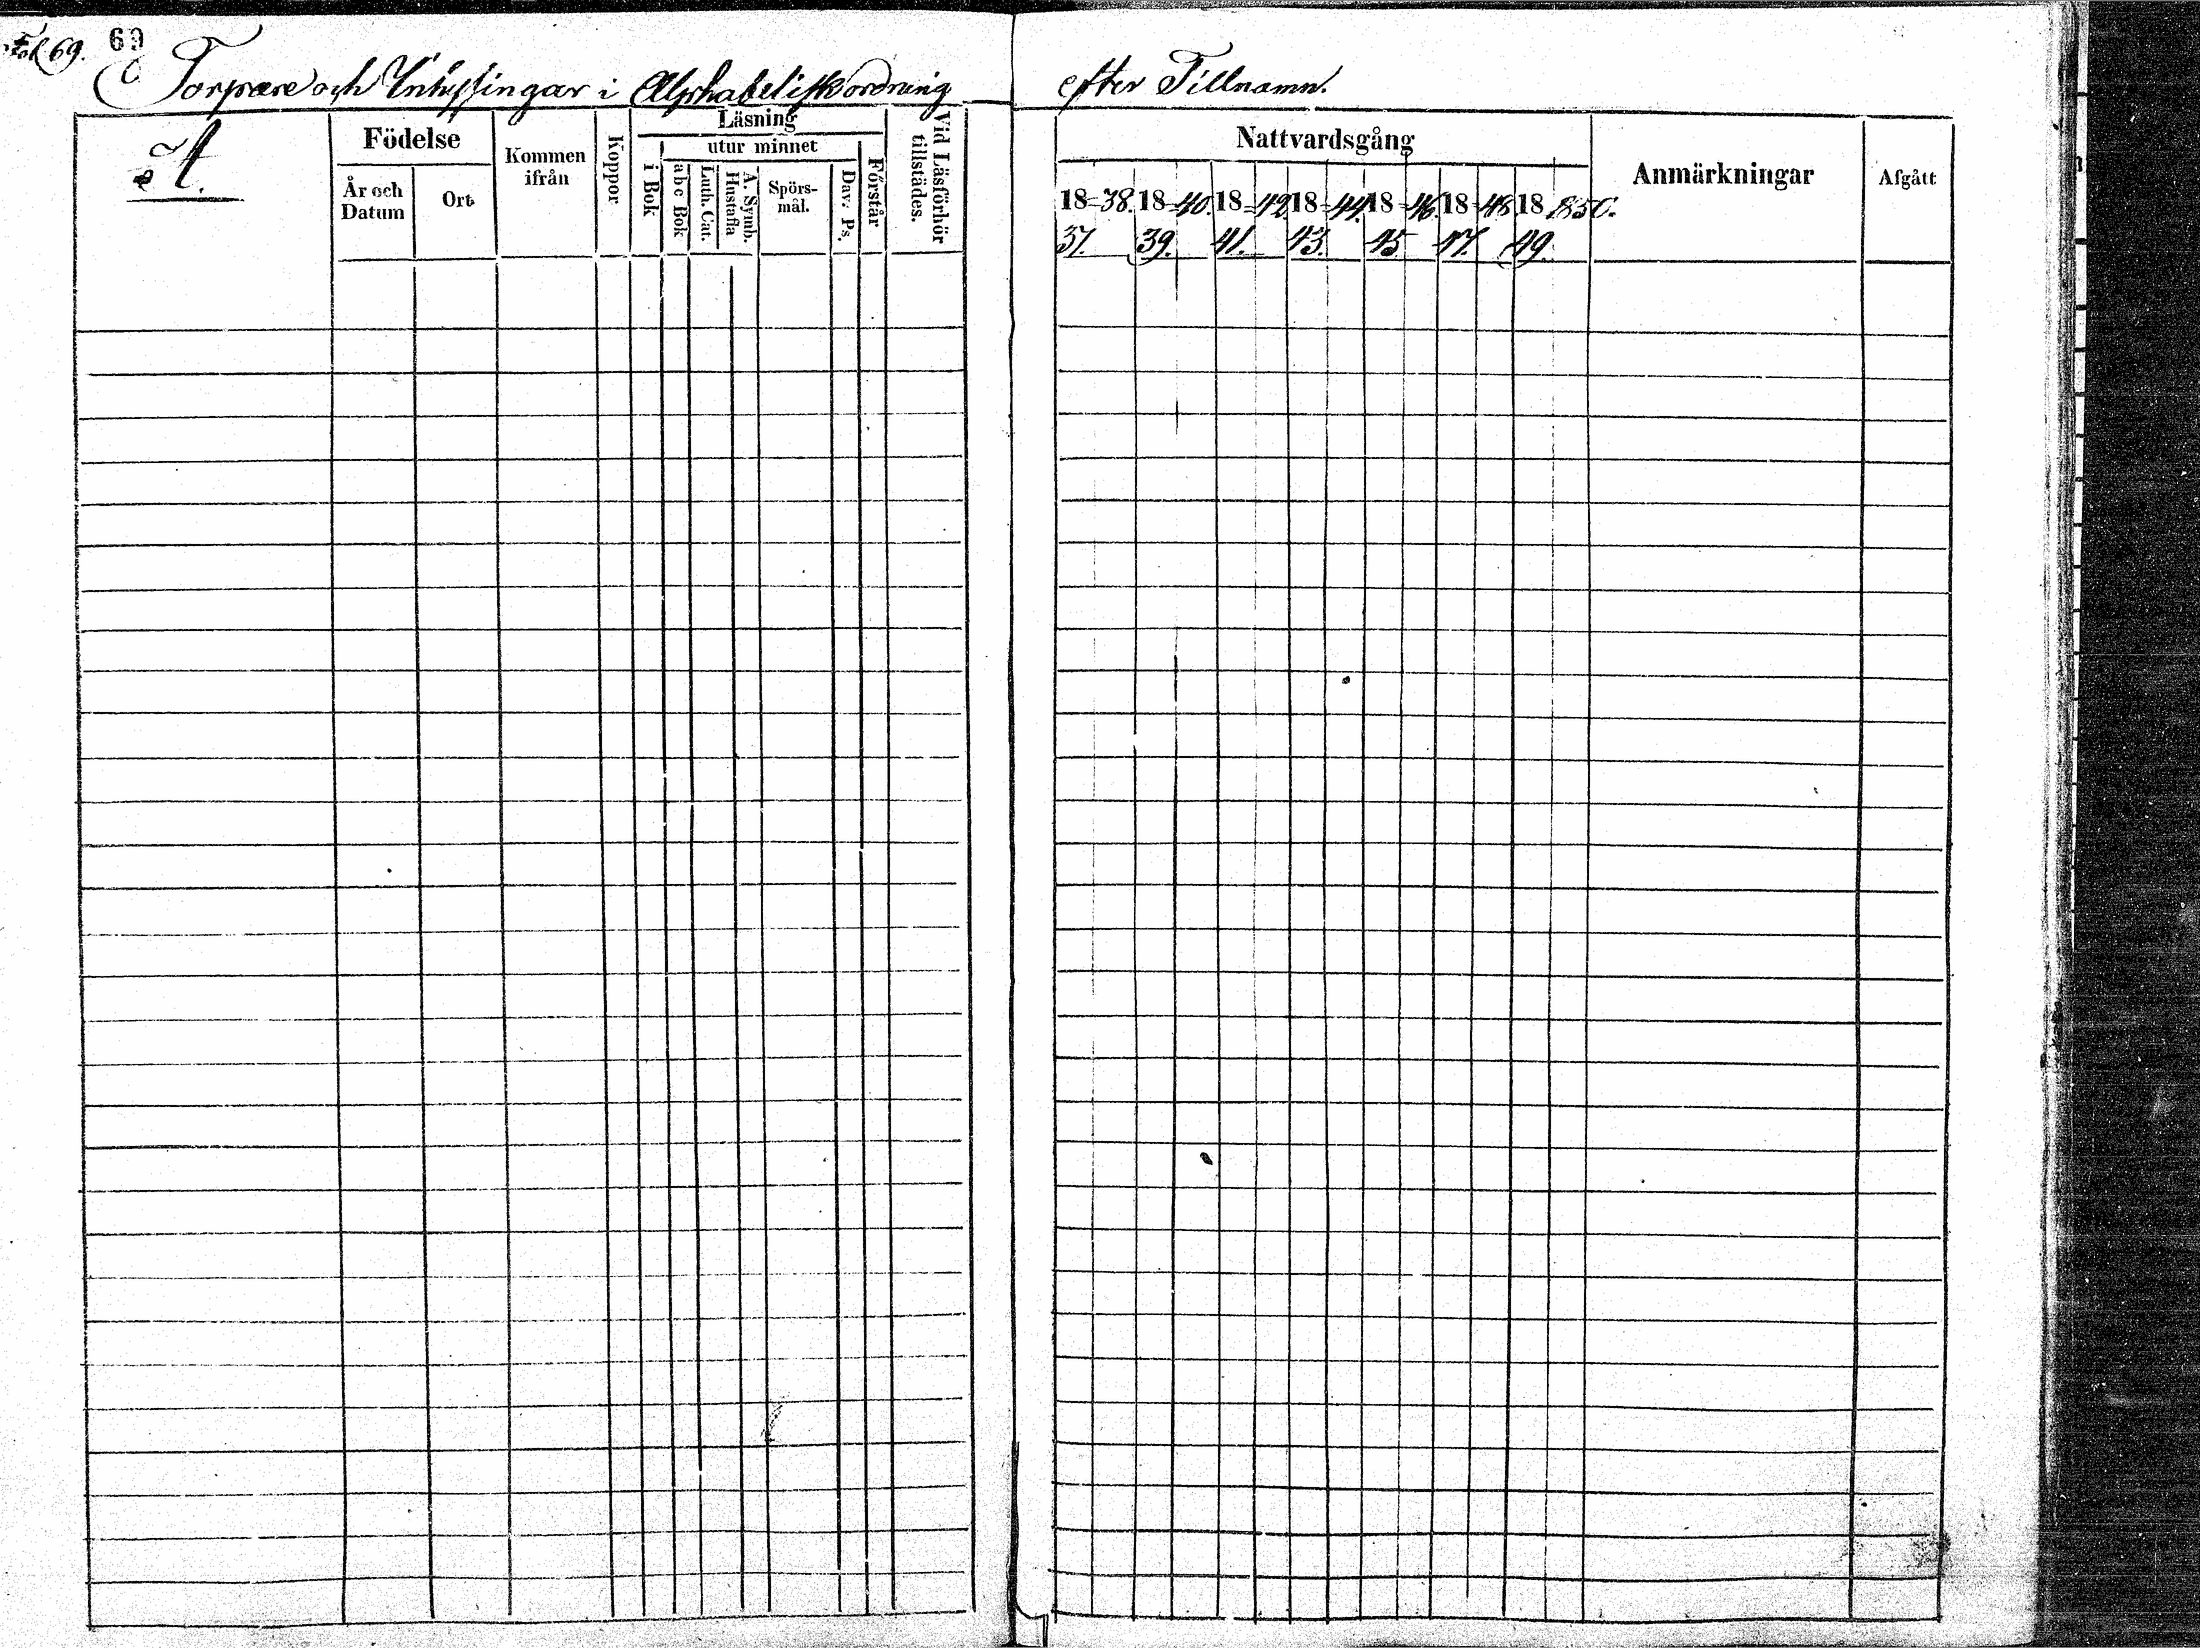 Fol. 69.
69
Torpare och Inhysingar i Alphabetisk ordning efter Tillnamn.
A.
Födelse
År och Datum
Ort
Kommen ifrån
Koppor
Läsning
i Bok
utur minnet
abc Bok
Luth. Cat.
A. Symb. Hustafla
Spörs-mål.
Dav. Ps.
Förstår
Vid Läsförhör tillstädes.
Nattvardsgång
18-38. 18-40. 18-42 18-44. 18-46. 18-48. 18 1850.
37. 39. 41. 43. 45 47. 49.
Anmärkningar
Afgått